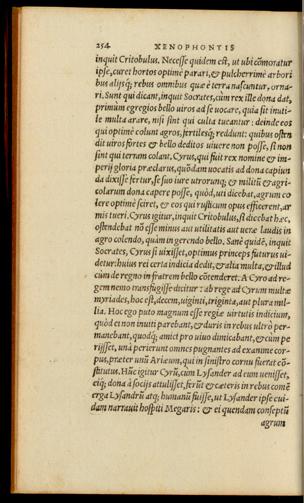 254 XENOPHONTIS
inquit Critobulus. Necesse quidem est, ut ubi cõmoratur
ipse, curet hortos optimè parari, & pulcherrimè arbori
bus alijsq́; rebus omnibus quæ è terra nascuntur, orna-
ri. Sunt qui dicant, inquit Socrates, cùm rex ille dona dat,
primùm egregios bello uiros ad se uocare, quia sit inuti-
le multa arare, nisi sint qui culta tueantur: deinde eos
qui optimè colunt agros, fertilesq́; reddunt: quibus osten
dit uiros fortes & bello deditos uiuere non posse, si non
sint qui terram colant. Cyrus, qui fuit rex nomine & im-
perij gloria præclarus, quodam uocatis ad dona capien
da dixisse fertur, se suo iure utrorunq́; & militũ & agri-
colarum dona capere posse, quòd, uti dicebat, agrum co
lere optimè sciret, & eos qui rusticum opus efficerent, ar
mis tueri. Cyrus igitur, inquit Critobulus, si dicebat hæc,
ostendebat nõ esse minus aut utilitatis aut ueræ laudis in
agro colendo, quàm in gerendo bello. Sanè quidẽ, inquit
Socrates, Cyrus si uixisset, optimus princeps futurus ui-
detur: huius rei certa indicia dedit, & alia multa, & illud
cùm de regno in fratrem bello cõtenderet. A Cyro ad re-
gem nemo transfugisse dicitur: ab rege ad Cyrum multæ
myriades, hoc est, decem, uiginti, triginta, aut plura mil-
lia. Hoc ego puto magnum esse regiæ uirtutis indicium,
quòd ei non inuiti parebant, & duris in rebus ultrò per-
manebant, quodq́; amici pro uiuo dimicabant, & cum pe
rijsset, unà perierunt omnes pugnantes ad exanime cor-
pus, præter unũ Ariæum, qui in sinistro cornu fuerat cõ-
stitutus. Hũc igitur Cyrũ, cùm Lysander ad eum uenisset,
eiq́; dona à socijs attulisset, ferũt & cæteris in rebus comẽ
erga Lysandrũ atq́; humanũ fuisse, ut Lysander ipse cui-
dam narrauit hospiti Megaris: & ei quendam conseptũ
agrum